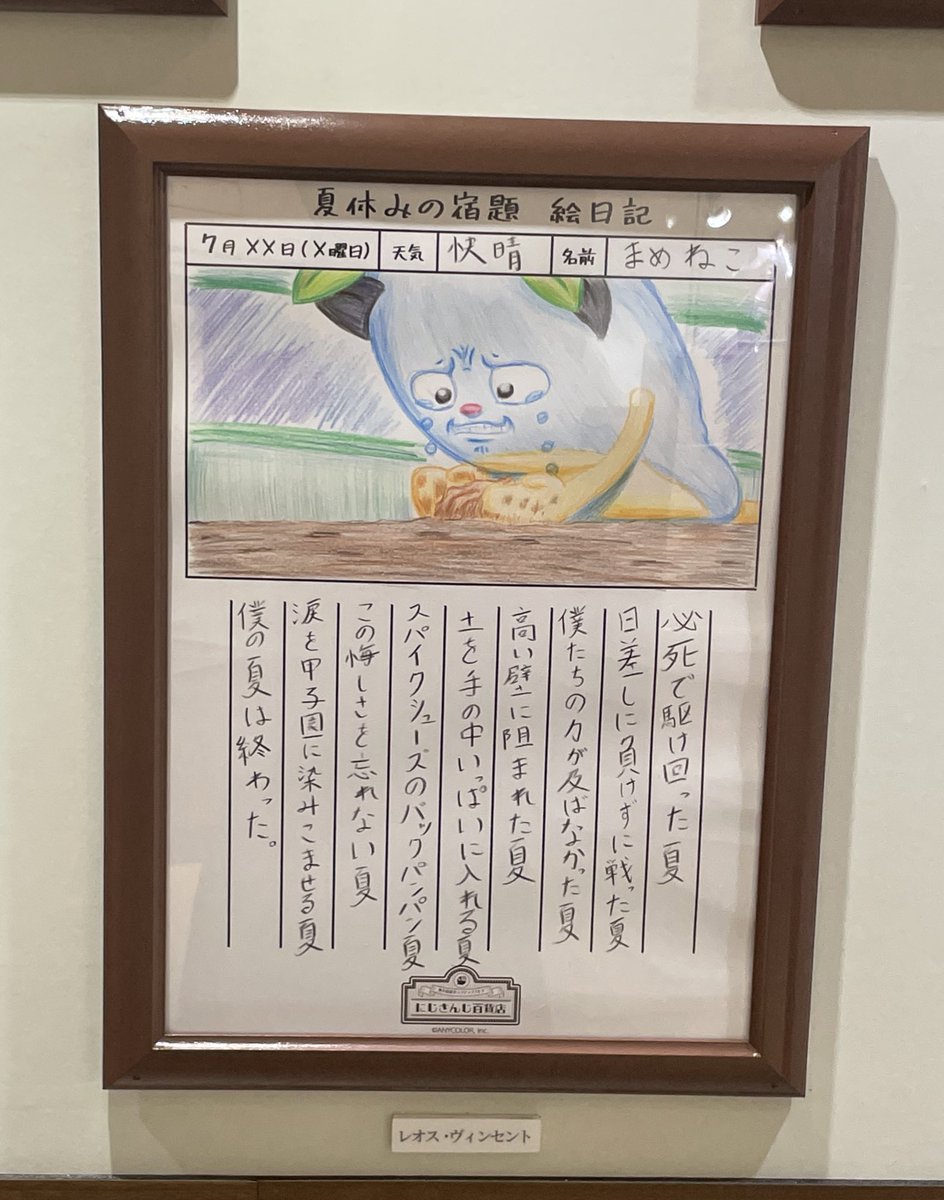 夏休みの宿題 絵日記
7月××日(×曜日) 天気 快晴 名前 まめねこ
必死で駆け回った夏
日差しに負けずに戦った夏
僕たちの力が及ばなかった夏
高い壁に阻まれた夏
土を手の中いっぱいに入れる夏
スパイクシューズのバックパンパン夏
この悔しさを忘れない夏
涙を甲子園に染みこませる夏
僕の夏は終わった。
にじさんじ百貨店
©ANYCOLOR, Inc.
レオス・ヴィンセント